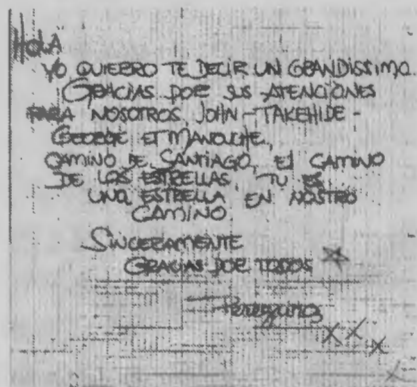 HOLA
YO QUIERRO TE DECIR UN GRANDISSIMO
GRACIAS POR SUS ATENCIONES
PARA NOSOTROS JOHN-TAKEHIDE-
GEORGE ET MANOUCHE,
CAMINO DE SANTIAGO, EL CAMINO
DE LAS ESTRELLAS, TU ES
UNA ESTRELLA EN NOSTRO
CAMINO
SINCERAMENTE
GRACIAS POR TODOS
Peregrinos
X X X
X